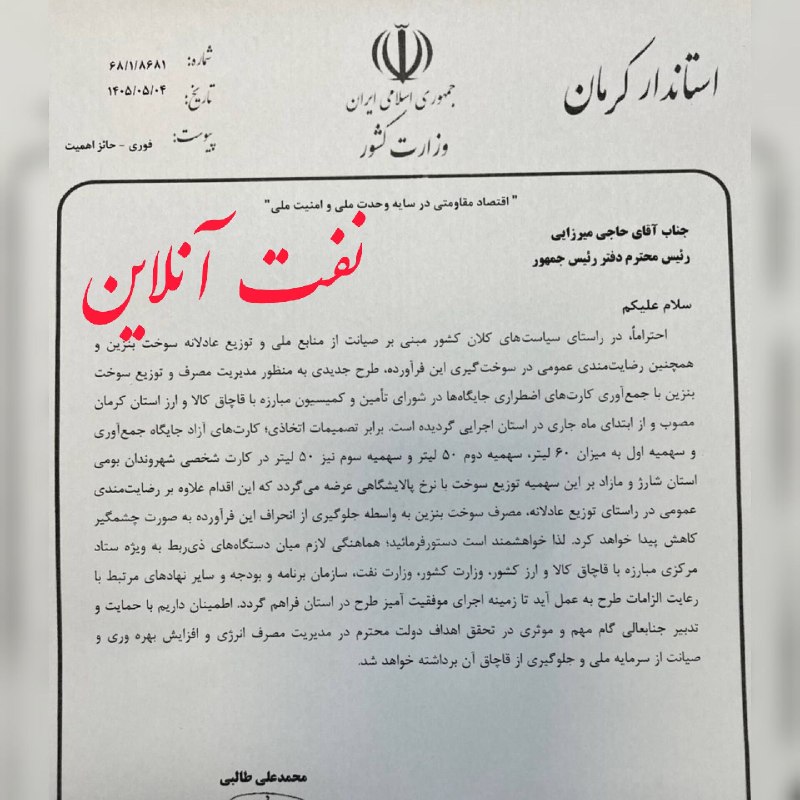 استاندار کرمان
جمهوری اسلامی ایران
وزارت کشور
شماره: ۶۸/۱/۸۶۸۱
تاریخ: ۱۴۰۵/۰۵/۰۴
پیوست: فوری - حائز اهمیت
" اقتصاد مقاومتی در سایه وحدت ملی و امنیت ملی"
جناب آقای حاجی میرزایی
رئیس محترم دفتر رئیس جمهور
نفت آنلاین
سلام علیکم
احتراماً، در راستای سیاست‌های کلان کشور مبنی بر صیانت از منابع ملی و توزیع عادلانه سوخت بنزین و
همچنین رضایت‌مندی عمومی در سوخت‌گیری این فرآورده، طرح جدیدی به منظور مدیریت مصرف و توزیع سوخت
بنزین با جمع‌آوری کارت‌های اضطراری جایگاه‌ها در شورای تأمین و کمیسیون مبارزه با قاچاق کالا و ارز استان کرمان
مصوب و از ابتدای ماه جاری در استان اجرایی گردیده است. برابر تصمیمات اتخاذی؛ کارت‌های آزاد جایگاه جمع‌آوری
و سهمیه اول به میزان ۶۰ لیتر، سهمیه دوم ۵۰ لیتر و سهمیه سوم نیز ۵۰ لیتر در کارت شخصی شهروندان بومی
استان شارژ و مازاد بر این سهمیه توزیع سوخت با نرخ پالایشگاهی عرضه می‌گردد که این اقدام علاوه بر رضایت‌مندی
عمومی در راستای توزیع عادلانه، مصرف سوخت بنزین به واسطه جلوگیری از انحراف این فرآورده به صورت چشمگیر
کاهش پیدا خواهد کرد. لذا خواهشمند است دستورفرمائید؛ هماهنگی لازم میان دستگاه‌های ذی‌ربط به ویژه ستاد
مرکزی مبارزه با قاچاق کالا و ارز کشور، وزارت کشور، وزارت نفت، سازمان برنامه و بودجه و سایر نهادهای مرتبط با
رعایت الزامات طرح به عمل آید تا زمینه اجرای موفقیت آمیز طرح در استان فراهم گردد. اطمینان داریم با حمایت و
تدبیر جنابعالی گام مهم و موثری در تحقق اهداف دولت محترم در مدیریت مصرف انرژی و افزایش بهره وری و
صیانت از سرمایه ملی و جلوگیری از قاچاق آن برداشته خواهد شد.
محمدعلی طالبی